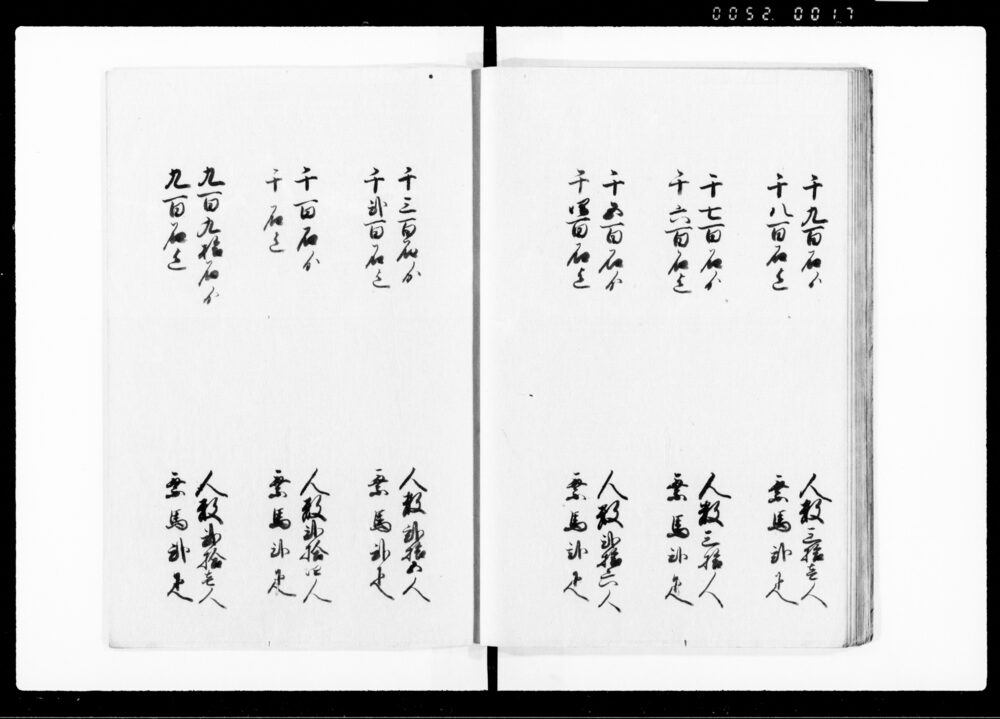 0052.0017
千九百石ゟ
千八百石迄
人数三拾壱人
乗馬弐疋
千七百石ゟ
千六百石迄
人数三拾人
乗馬弐疋
千五百石ゟ
千四百石迄
人数弐拾六人
乗馬弐疋
千三百石ゟ
千弐百石迄
人数弐拾五人
乗馬弐疋
千百石ゟ
千石迄
人数弐拾四人
乗馬弐疋
九百九拾石ゟ
九百石迄
人数弐拾壱人
乗馬弐疋